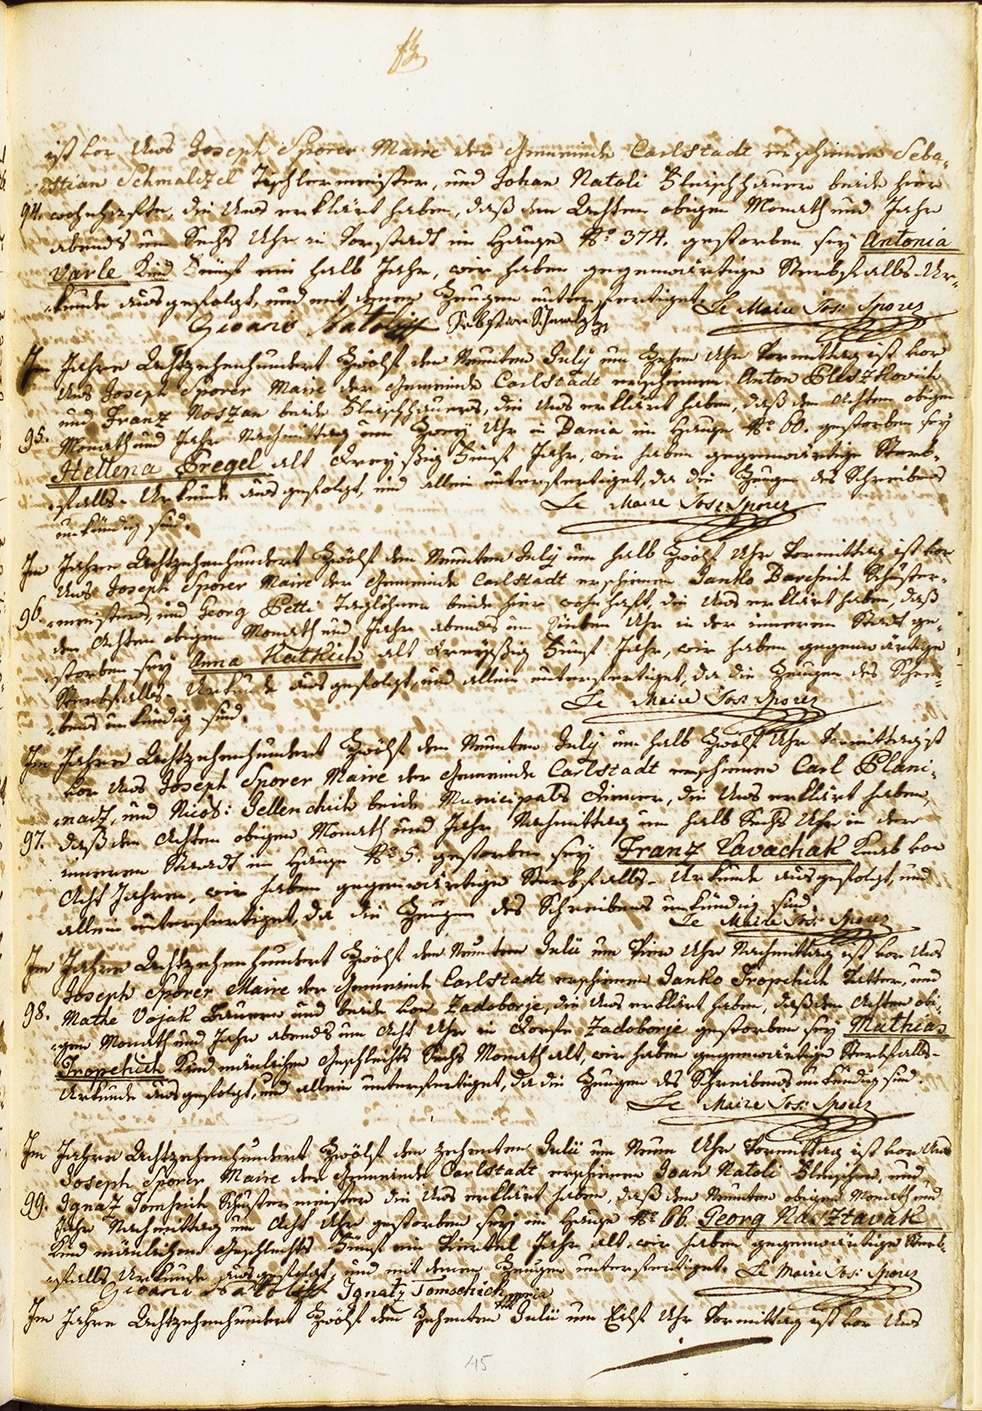 ist vor Uns Joseph Sporer Maire der Gemeinde Carlstadt erschienen Seba-
stian Schmaltzel Tischlermeister, und Johan Natoli Fleischhauer beide hier
94. wohnhafte, die Uns erklärt haben, daß den Achten obigen Monath und Jahr
abends um Sechs Uhr in Vorstadt im Hause No 374. gestorben sey Antonia
Varle Kind Fünf ein halb Jahr, wir haben gegenwärtige Sterbfalls-Ur-
kunde ausgefolgt, und mit denen Zeugen unterfertiget. Le Maire Jos: Sporer
Gioani Natoli Sebstian Schmaltzl
Im Jahre Achtzehenhundert Zwölf den Neunten July um Zehen Uhr Vormittag ist vor
Uns Joseph Sporer Maire der Gemeinde Carlstadt erschienen Anton Pleszkovich
und Franz Noszan beide Fleischhauers, die Uns erklärt haben, daß den Achten obigen
95. Monath und Jahr Nachmittag um Zwey Uhr in Bania im Hause No 60. gestorben sey
Hellena Pregel alt Dreyßig Fünf Jahr, wir haben gegenwärtige Sterb-
falls-Urkunde ausgefolgt, und allein unterfertiget, da die Zeugen des Schreibens
unkündig sind. Le Maire Jos: Sporer
Im Jahre Achtzehenhundert Zwölf den Neunten July um halb Zwölf Uhr Vormittag ist vor
Uns Joseph Sporer Maire der Gemeinde Carlstadt erschienen Janko Barchich Schuster-
96. meisters, und Georg Petti Taglöhner beide hier wohnhaft, die Uns erklärt haben, daß
den Achten obigen Monath und Jahr abends um Sieben Uhr in der inneren Stadt ge-
storben sey Anna Katkich alt Dreyßig Fünf Jahr, wir haben gegenwärtige
Sterbfalls-Urkunde ausgefolgt, und allein unterfertiget, da die Zeugen des Schrei-
bens unkündig sind. Le Maire Jos: Sporer
Im Jahre Achtzehenhundert Zwölf den Neunten July um halb Zwölf Uhr Vormittag ist
vor Uns Joseph Sporer Maire der Gemeinde Carlstadt erschienen Carl Plani-
natz, und Nicos: Jellenchich beide Municipals Diener, die Uns erklärt haben,
97. daß den Achten obigen Monath und Jahr Nachmittag um halb Sechs Uhr in der
inneren Staadt im Hause No 5. gestorben sey Franz Lavachak Knab von
Acht Jahren, wir haben gegenwärtige Sterbfalls-Urkunde ausgefolgt, und
allein unterfertiget, da die Zeugen des Schreibens unkündig sind. Le Maire Jos: Sporer
Im Jahre Achtzehenhundert Zwölf den Neunten Julii um Vier Uhr Nachmittag ist vor Uns
Joseph Sporer Maire der Gemeinde Carlstadt erschienen Janko Tropchich Vatter, und
98. Mathe Vojak Bauern und beide von Zadoborje, die Uns erklärt haben, daß den Achten obi-
gen Monath und Jahr abends um Acht Uhr in Dorfe Zadoborje gestorben sey Mathias
Tropchich Kind mänlichen Geschlechts Sechs Monath alt, wir haben gegenwärtige Sterbfalls-
Urkunde ausgefolgt, und allein unterfertiget, da die Zeugen des Schreibens unkündig sind.
Le Maire Jos: Sporer
Im Jahre Achtzehenhundert Zwölf den zehenten Julii um Neun Uhr Vormittag ist vor Uns
Joseph Sporer Maire der Gemeinde Carlstadt erschienen Joan Natoli Fleischer, und
99. Ignatz Tomschich Schustermeister die Uns erklärt haben, daß den Neunten obigen Monath und
Jahr Nachmittag um Acht Uhr gestorben sey im Hause No 66. Georg Nasztavak
Kind mänlichen Geschlechts Fünf ein Viertel Jahr alt, wir haben gegenwärtige Sterb-
falls Urkunde ausgefolgt, und mit denen Zeugen unterfertiget. Le Maire Jos: Sporer
Gioani Natoli Ignatz Tomschich
Im Jahre Achtzehenhundert Zwölf den Zehenten Julii um Eilf Uhr Vormittag ist vor Uns
45